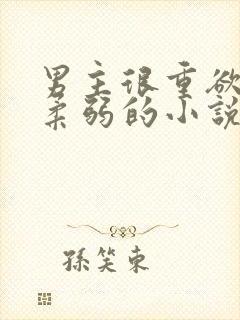 男主很重欲
柔弱的小說
孫笑東